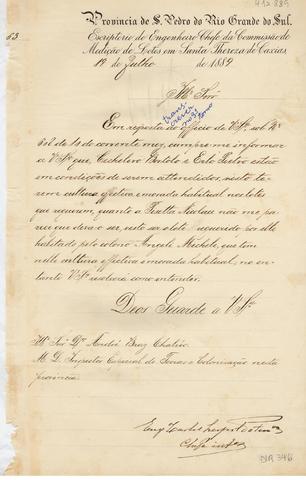 412 889
Provincia de S. Pedro do Rio Grande do Sul.
53
Escriptorio do Engenheiro Chefe da Commissão de
Medição de Lotes em Santa Thereza de Caxias
19 de Julho de 1889
Illº Snr
trans
crever
Em resposta do officio de VSª sob Nº
de 10 do corrente mez, cumpre-me informar
a VSª que, e Pietro estão
em condições de serem attendidos, visto te
rem cultura effectiva e morada habitual nos lotes
que requerem, quanto a Nicolau não me pa
rece que deva o ser, visto ser o lote requerido por elle
habitado pelo colono Angelo Michele, que tem
nelle cultura effectiva e morada habitual, no en
tanto VSª resolverá como entender.
Deos Guarde a VSª
Illº Snr Dr André Braz Chalréo
M. D. Inspector Especial de Terras e Colonização nesta
provincia
Engº Carlos
Chefe intº
DIR 346